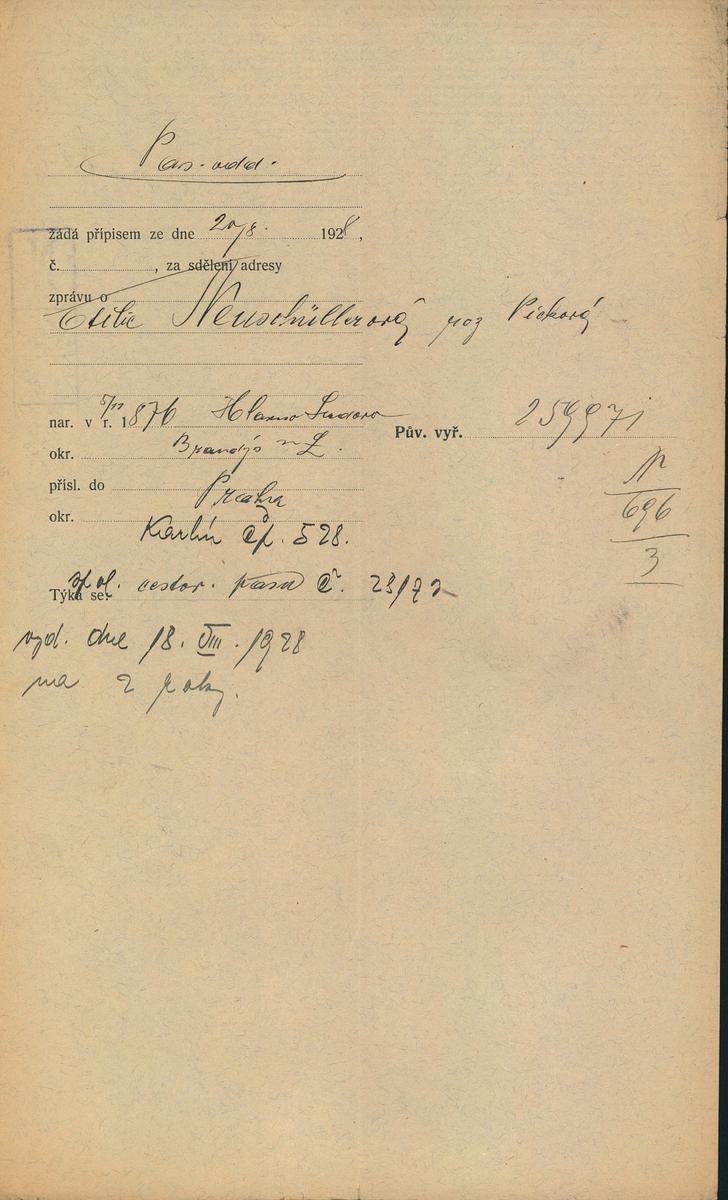 Pas. odd.
žádá přípisem ze dne 20/8. 1928,
č. , za sdělení adresy
zprávu o
Otilie Neuschüllerová roz Picková
nar. v r. 1876 5/11
Pův. vyř. 259971
okr. Brandýs n L.
přísl. do Praha
okr.
Karlín čp. 528.
N
696
3
Týká se: cestov. pasu č. 23/72
vyd. dne 18. VIII. 1928
na 2 roky.